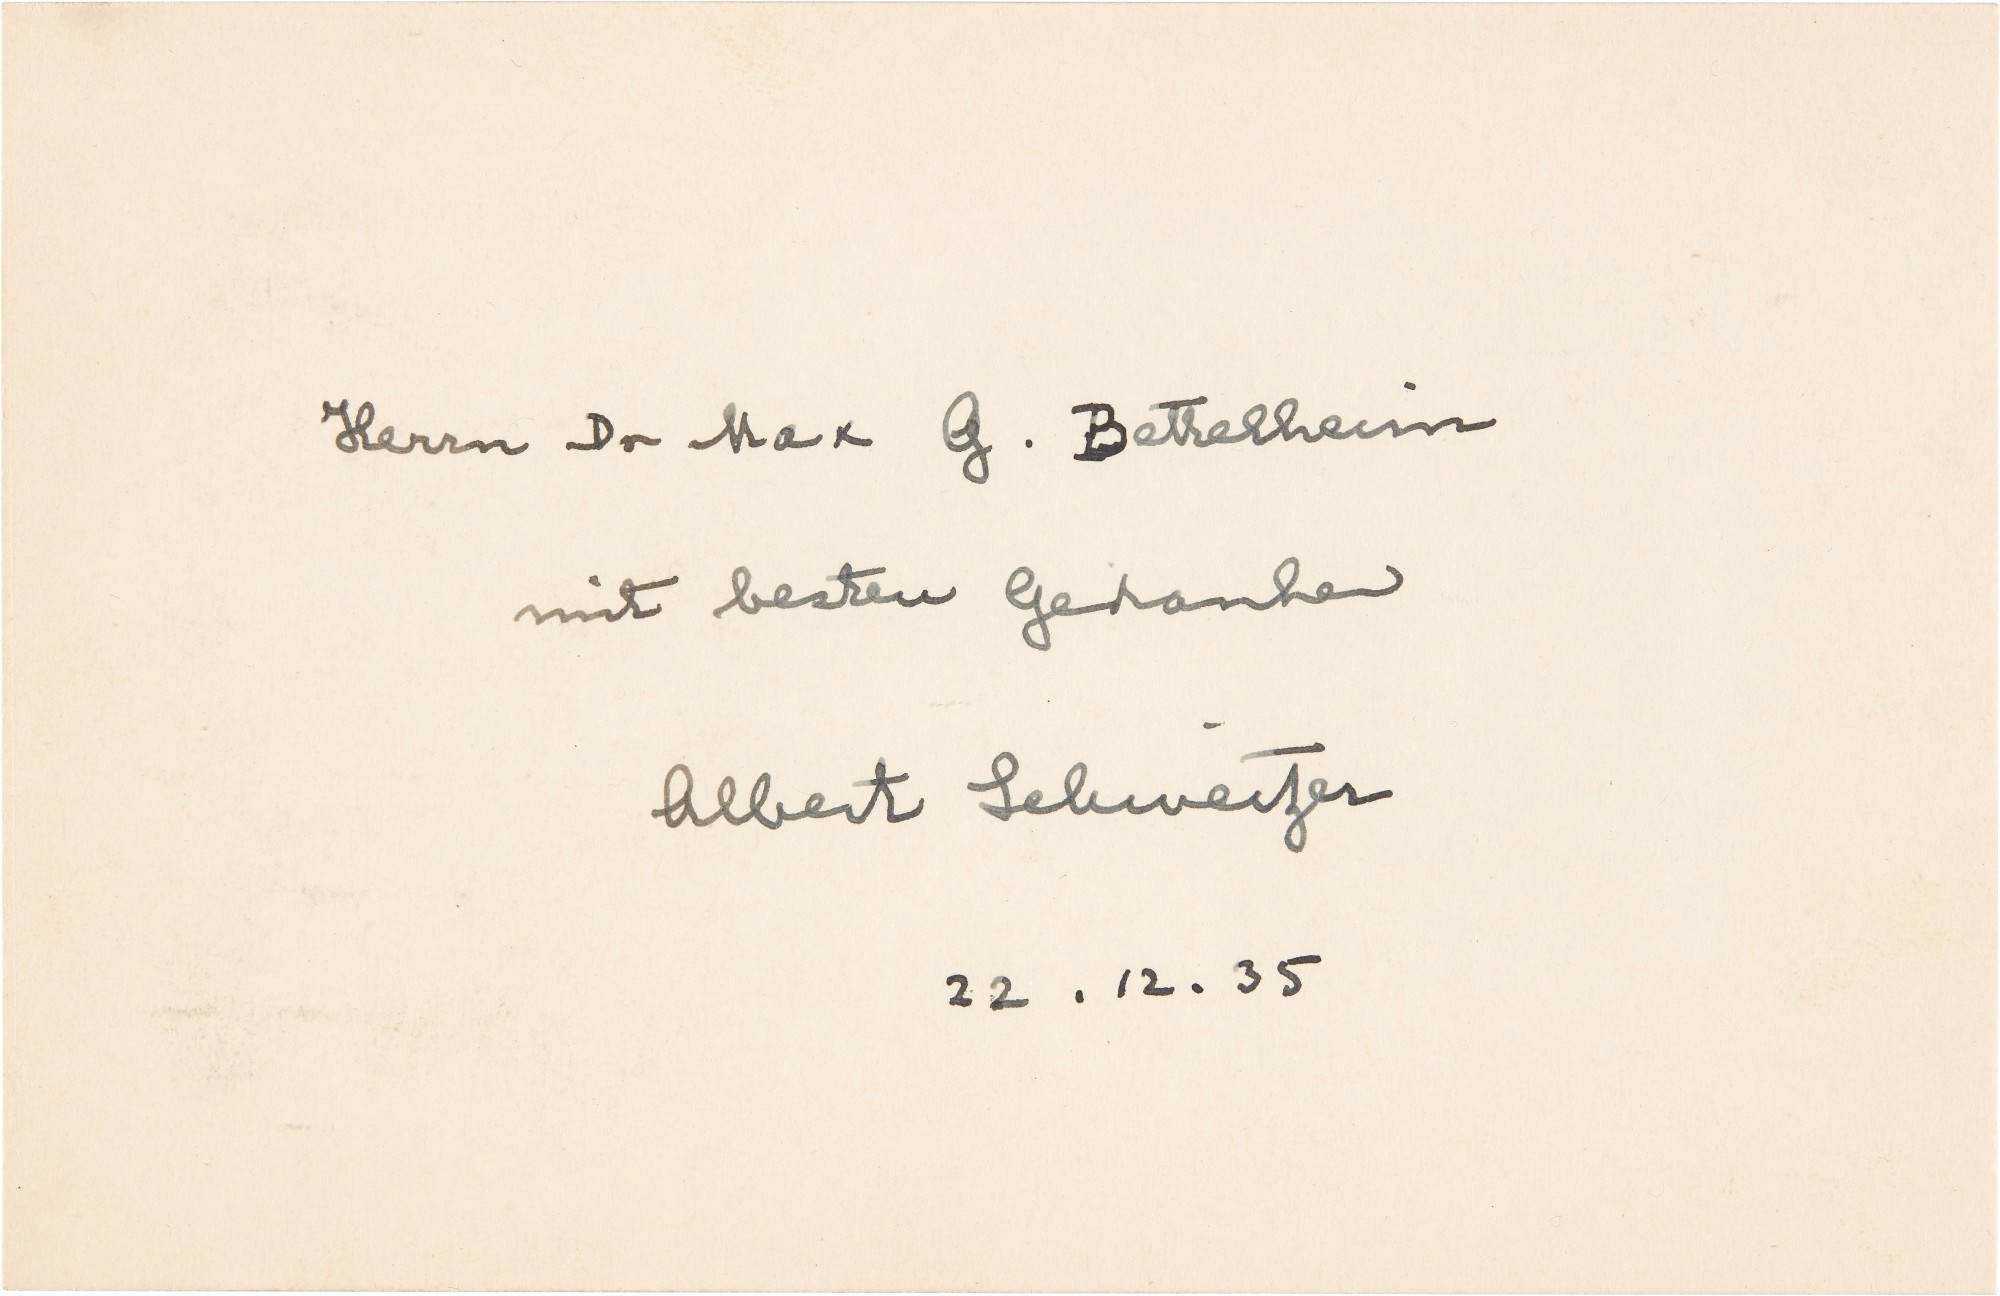 Herrn Dr Max G. Bettelheim
mit besten Gedanken
Albert Schweitzer
22.12.35